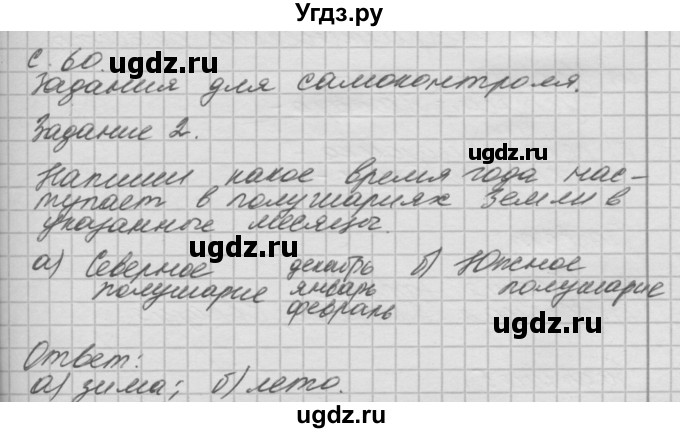 Угдз.ру
с. 60.
ugdz.ru
Задания для самоконтроля.
Задание 2.
ugdz.ru
Напиши какое время года нас-
тупает в полушариях Земли в
указанные месяцы.
ugdz.ru
а) Северное декабрь б) Южное
полушарие январь полушарие
февраль
ugdz.ru
Ответ:
а) зима; б) лето.
ugdz.ru
ugdz.ru